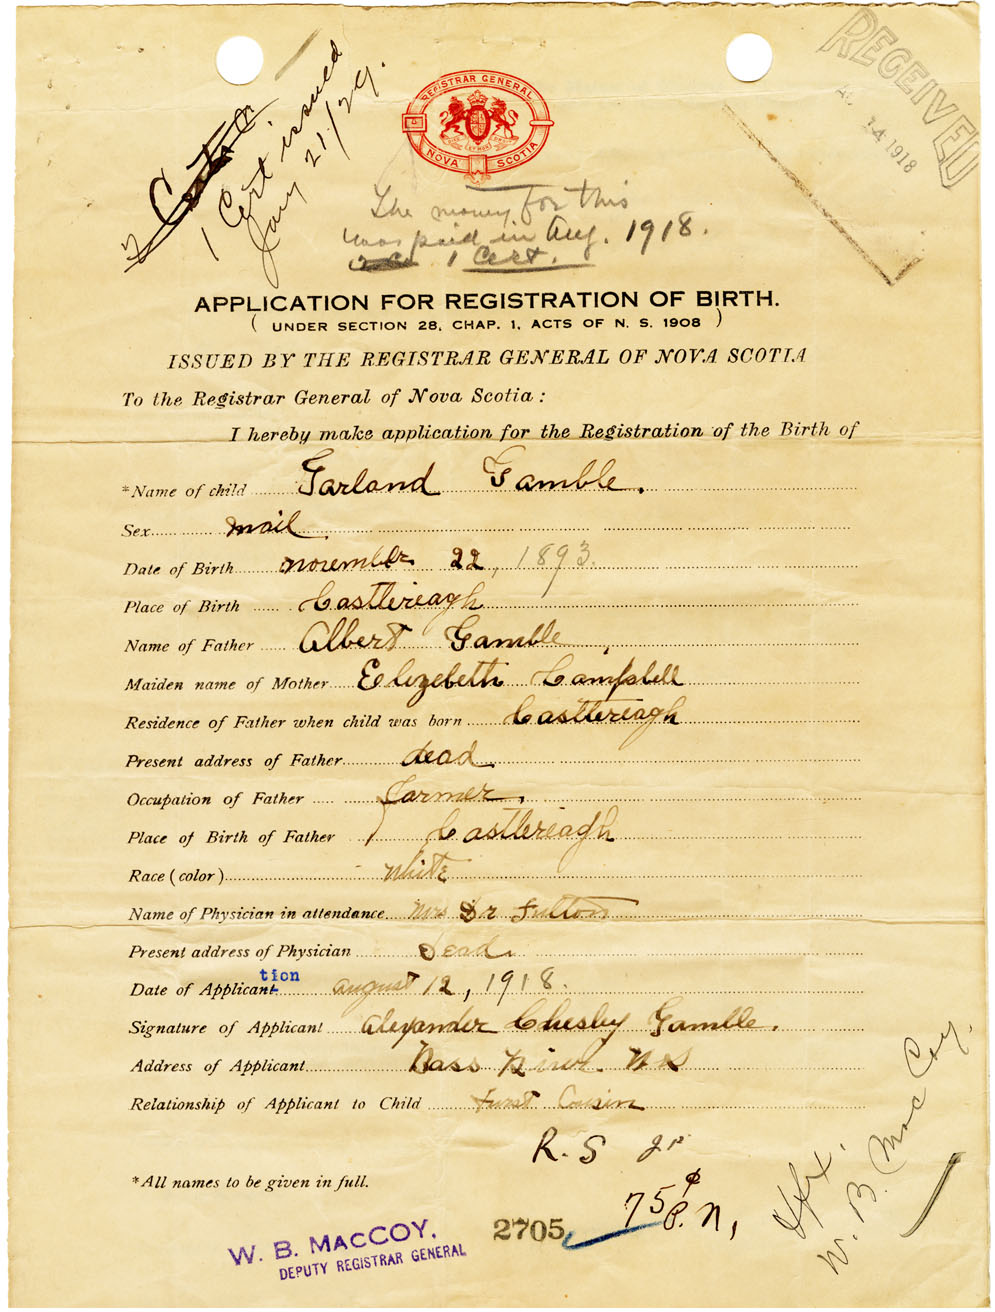 RECEIVED
14 1918
REGISTRAR GENERAL
NOVA SCOTIA
1 Cert issued
Jany 21/29.
The money for this
was paid in Aug. 1918.
1 Cert.
APPLICATION FOR REGISTRATION OF BIRTH.
( UNDER SECTION 28, CHAP. 1, ACTS OF N. S. 1908 )
ISSUED BY THE REGISTRAR GENERAL OF NOVA SCOTIA
To the Registrar General of Nova Scotia :
I hereby make application for the Registration of the Birth of
*Name of child Garland Gamble.
Sex mail
Date of Birth november 22, 1893.
Place of Birth Castlereagh
Name of Father Albert Gamble
Maiden name of Mother Elizebeth Campbell
Residence of Father when child was born Castlereagh
Present address of Father dead
Occupation of Father farmer.
Place of Birth of Father Castlereagh
Race (color) White
Name of Physician in attendance Mrs Dr Fulton
Present address of Physician Dead.
tion
Date of Applicant august 12, 1918.
Signature of Applicant Alexander Chesby Gamble.
Address of Applicant Bass River. N S
Relationship of Applicant to Child furst Cousin
R. S Jr
*All names to be given in full.
75¢
P. N,
Hfx.
W. B. Mac Coy.
2705
W. B. MACCOY,
DEPUTY REGISTRAR GENERAL